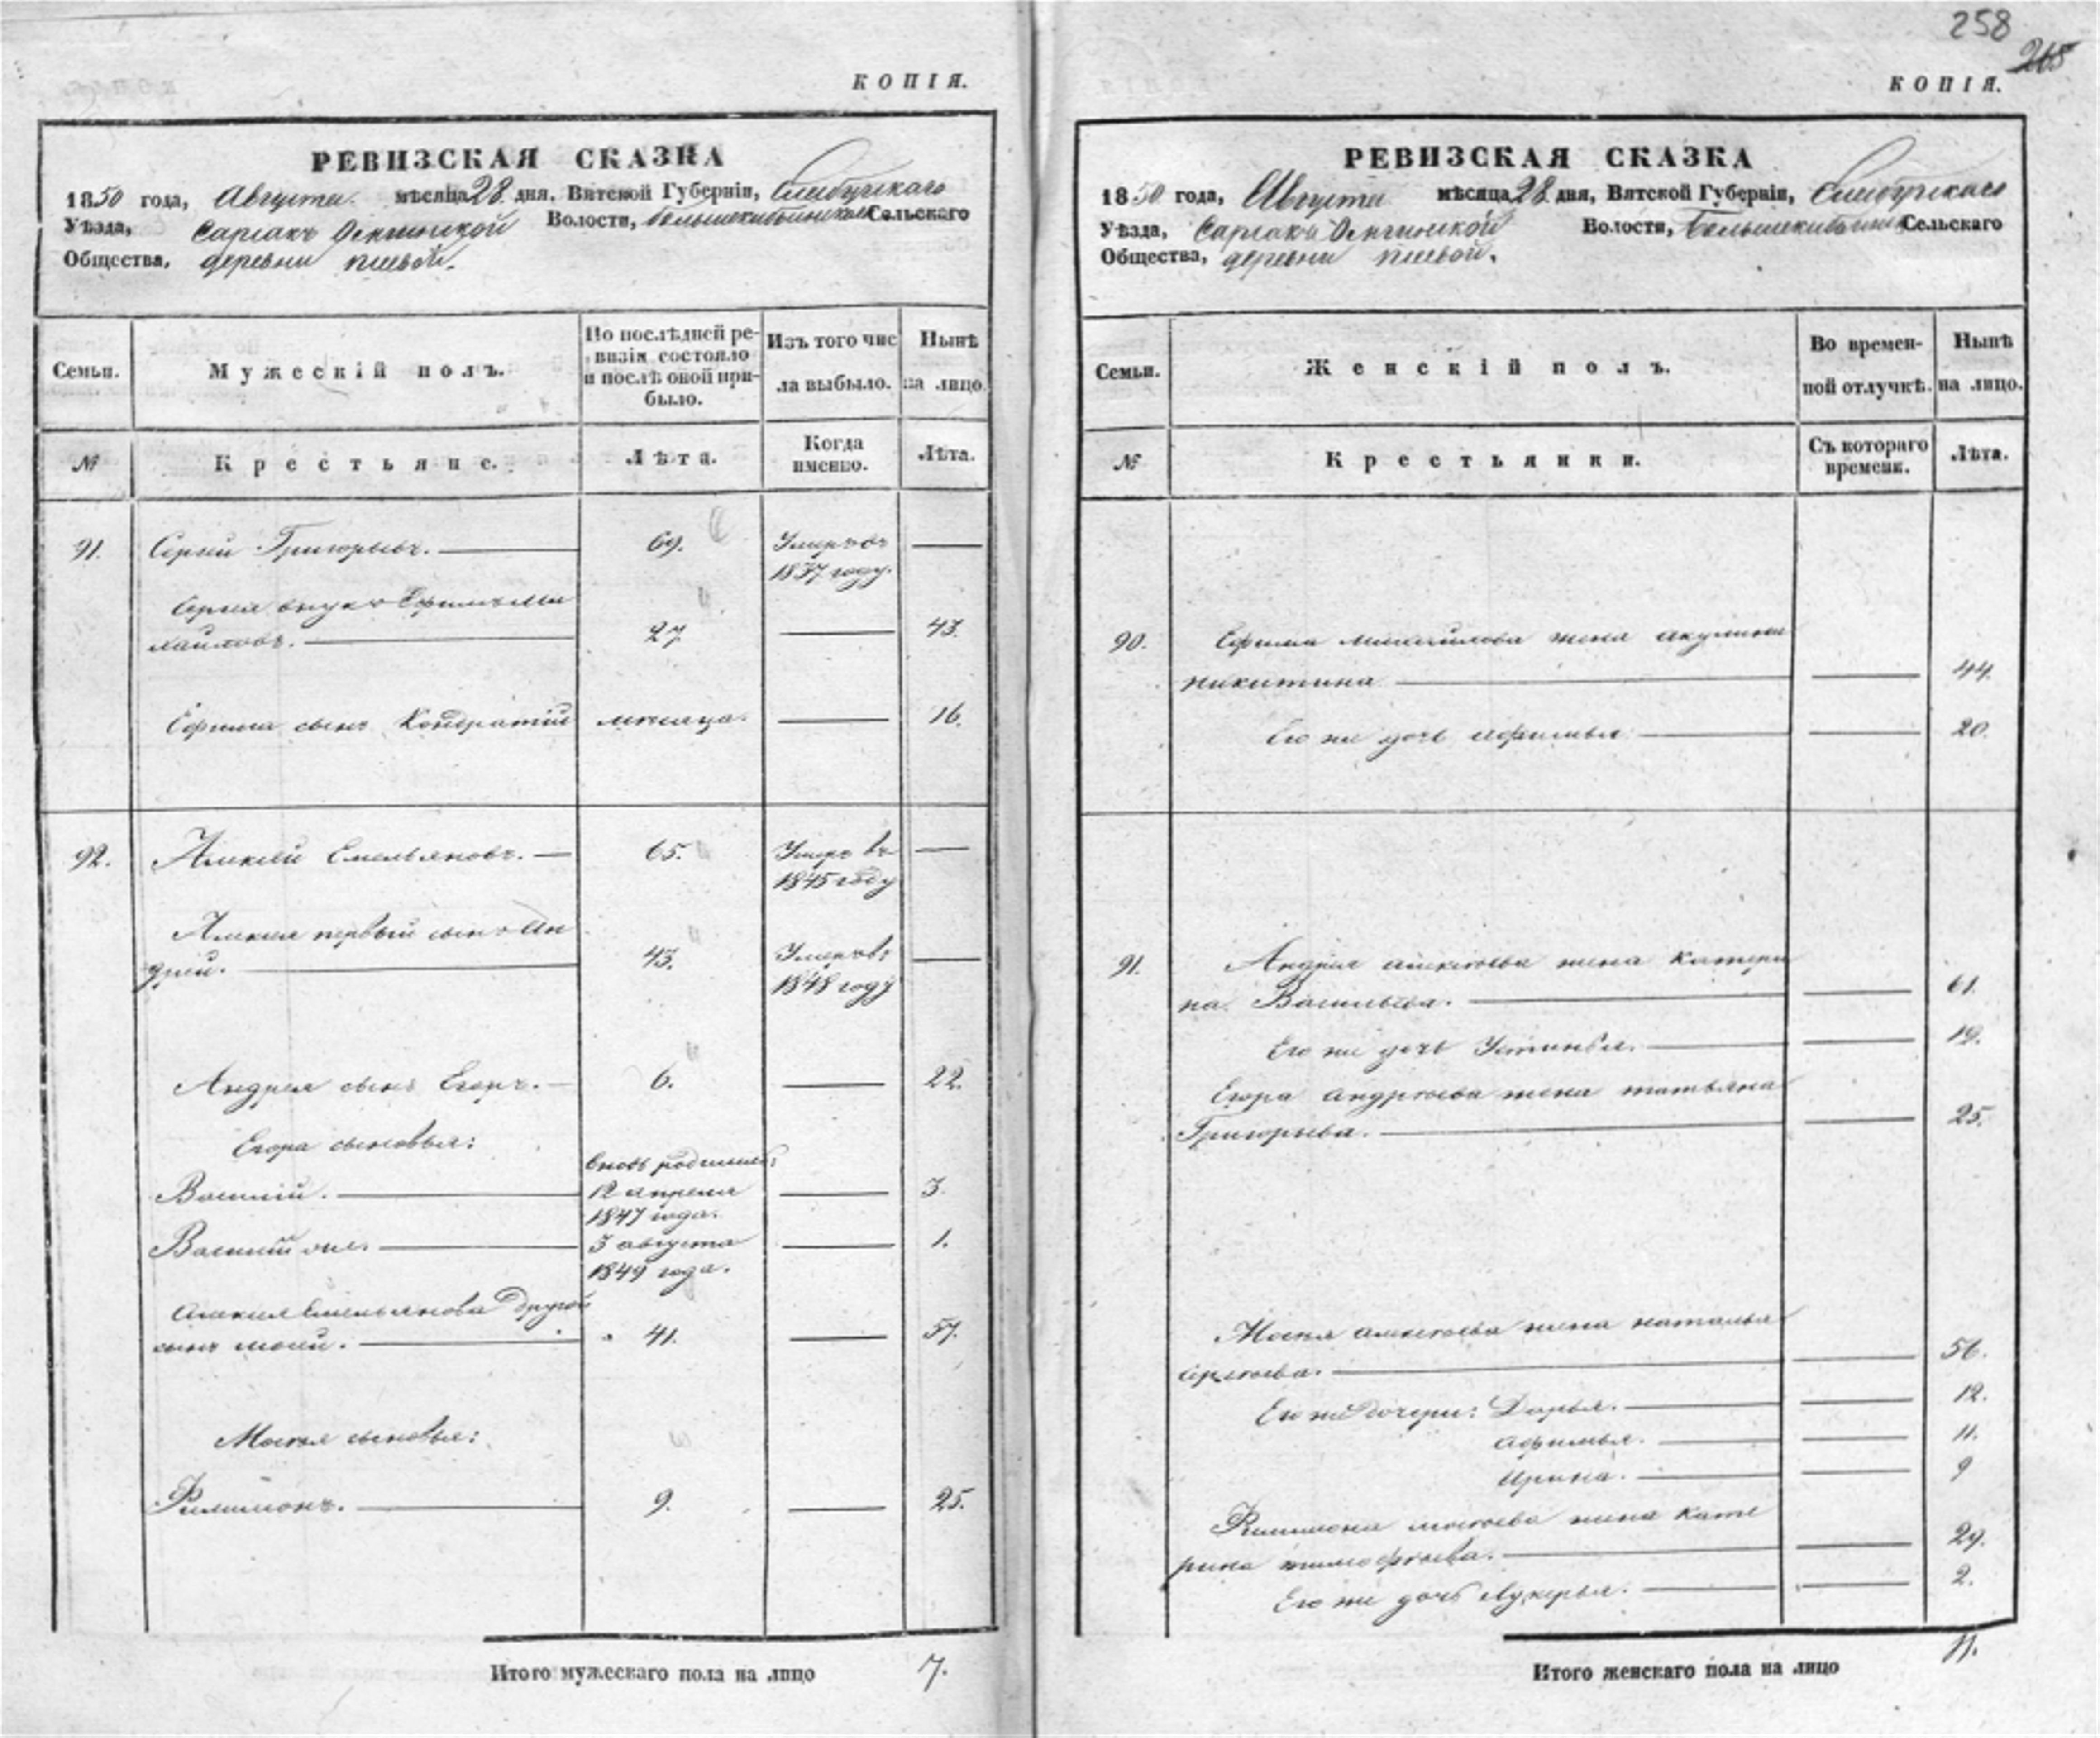 258
265
КОПІЯ.
РЕВИЗСКАЯ СКАЗКА
1850 года, Августа мѣсяца 28 дня, Вятской Губерніи, Елабужскаго
Уѣзда, Волости, Сельскаго
Общества, деревни
Семьи.
Мужескій полъ.
По послѣдней ре-
визіи состояло
и послѣ оной при-
было.
Изъ того чис
ла выбыло.
Нынѣ
на лицо.
№
Крестьяне.
Лѣта.
Когда
именно.
Лѣта.
91. Сергей Григорьевъ. 69. Умеръ въ
1837 году.
Сергея внукъ Ефимъ Ми
хайловъ. 27 43.
Ефима сынъ Кондратій месяца. 16.
92. Алексей Емельяновъ. 65. Умеръ въ
1845 году
Алексея первый сынъ Ан
дрей. 43. Умеръ въ
1848 году
Андрея сынъ Егоръ. 6. 22.
Егора сыновья:
вновь рожденные
Василій. 12 апреля 3.
1847 года.
Василій 3 августа 1.
1849 года.
Алексея Емельянова другой
сынъ Мосей. 41. 57.
Мосея сыновья:
Филимонъ. 9. 25.
Итого мужескаго пола на лицо 7.
КОПІЯ.
РЕВИЗСКАЯ СКАЗКА
1850 года, Августа мѣсяца 28 дня, Вятской Губерніи, Елабужскаго
Уѣзда, Волости, Сельскаго
Общества, деревни
Семьи.
Женскій полъ.
Во времен-
ной отлучкѣ.
Нынѣ
на лицо.
№
Крестьянки.
Съ котораго
времени.
Лѣта.
90. Ефима Михайлова жена Акулина
Никитина 44.
Его же дочь Афимья 20.
91. Андрея Алексѣева жена Катери
на Васильева. 61.
Его же дочь Устинья. 19.
Егора Андрѣева жена Татьяна
Григорьева. 25.
Мосея Алексѣева жена Наталья
Сергѣева. 56.
Его же дочери: Дарья. 12.
Афимья. 11.
Ирина. 9
Филимона Мосѣева жена Кате
рина Тимофѣева. 29.
Его же дочь Лукерья. 2.
Итого женскаго пола на лицо 11.